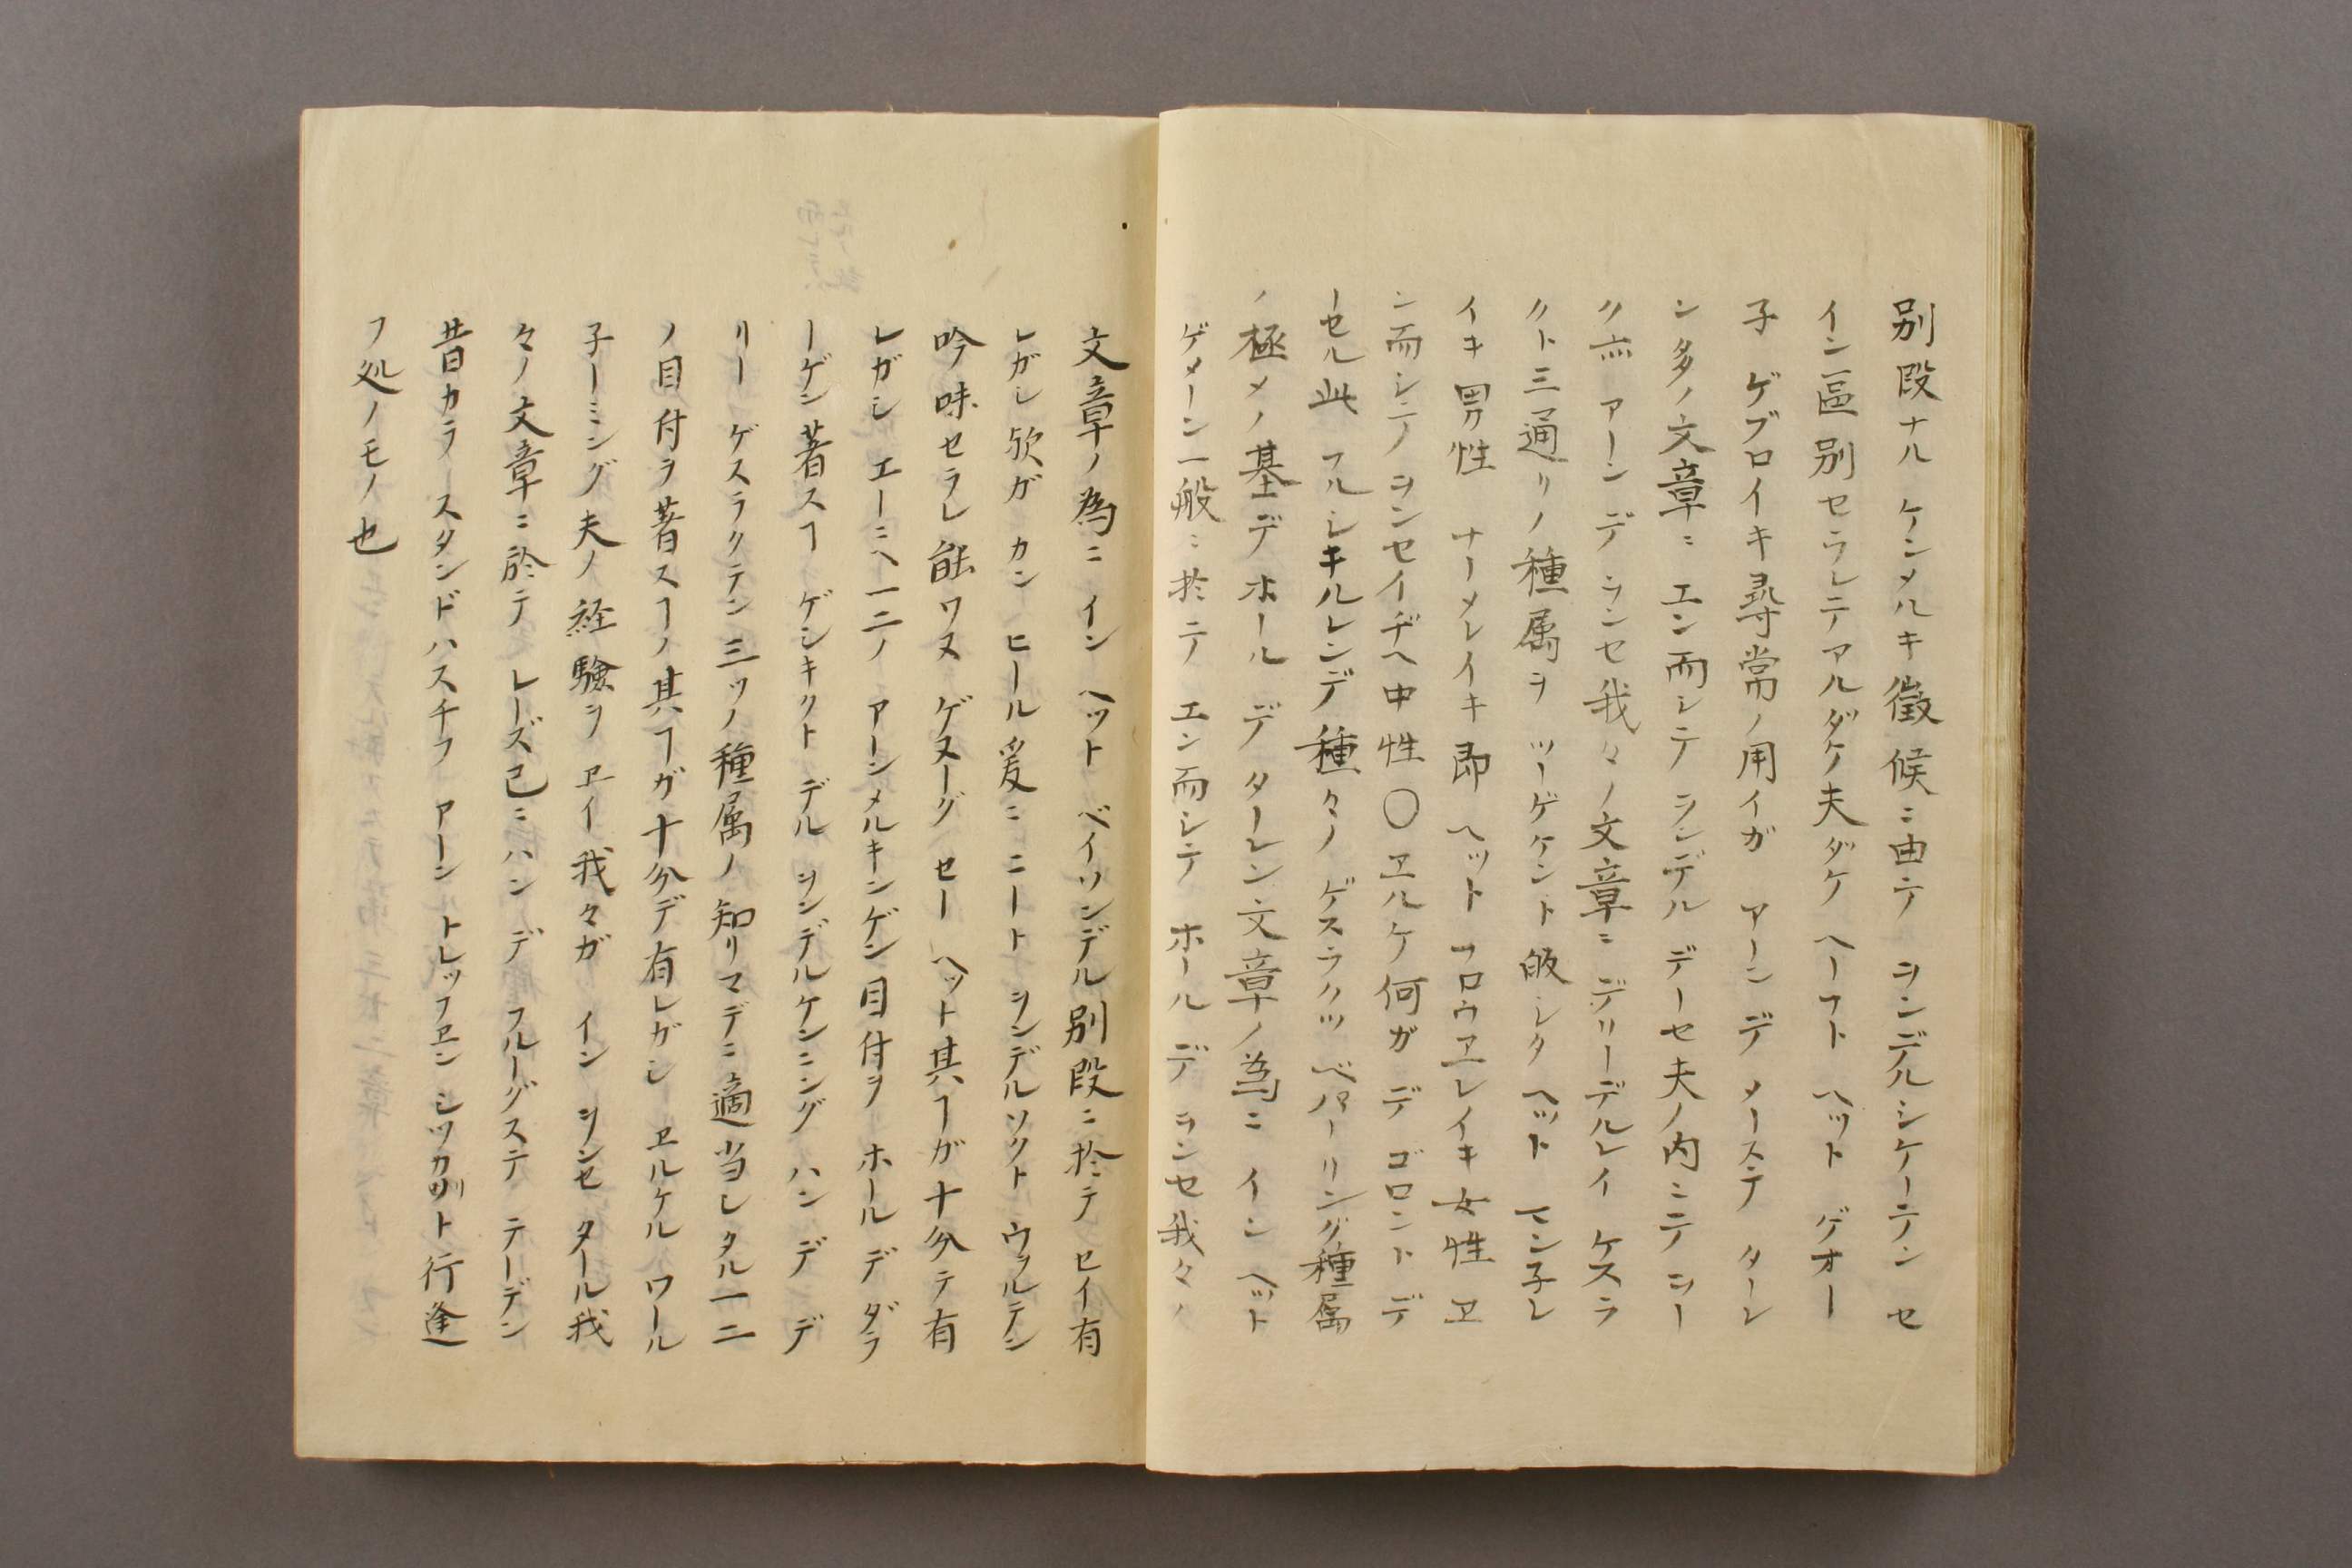 別段ナル ケンメルキ徴候ニ由テ ヲンデルシケーテン セ
イン區別セラレテアルダケ夫ダケ ヘーフト ヘット ゲオー
子 ゲブロイキ尋常ノ用イガ アーン デ メーステ ターレ
ン多ノ文章ニ エン而シテ ヲンデル デーセ夫ノ内ニテ ヲー
ク亦 アーン デ ヲンセ我々ノ文章ニ デリーデルレイ ケスラ
クト三通リノ種属ヲ ツーゲケント 皈シタ ヘット マン子レ
イキ男性 ナーメレイキ即 ヘット フロウヱレイキ女性 ヱ
ン而シテノ ヲンセイヂヘ中性〇ヱルケ何ガ デ ゴロント デ
ーセル此 フルシキルレンデ種々ノ ゲスラクツ ベパーリング種属
ノ極メノ基デ ホール デ ターレン文章ノ為ニ イン ヘット
ゲメーン一般ニ於テ エン而シテ ホール デ ヲンセ我々ノ
文章ノ為ニ イン ヘット ベイソンデル別段ニ於テ セイ有
レガシ欤ガ カン ヒール爰ニ ニート ヲンデルソクト ウヲルデン
吟味セラレ能ワヌ ゲヌーグ セー ヘット其ヿガ十分テ有
レガシ エーニヘ一二ノ アーンメルキンゲン目付ヲ ホール デ ダラ
ーゲン著スヿ ゲシキクト デル ヲンデルケンニング ハン デ デ
リー ゲスラクテン三ツノ種属ノ知リマデニ適当シタル一二
ノ目付ヲ著スヿノ其ヿガ十分デ有レガシ ヱルケル ワール
子ーミング夫ノ経験ヲ ヱイ我々ガ イン ヲンセ タール我
々ノ文章ニ於テ レーズ已ニ ハン デ フルーグステ テーデン
昔日カラ スタンドハスチフ アーン トレッフヱン シツカリト行逢
フ処ノモノ也